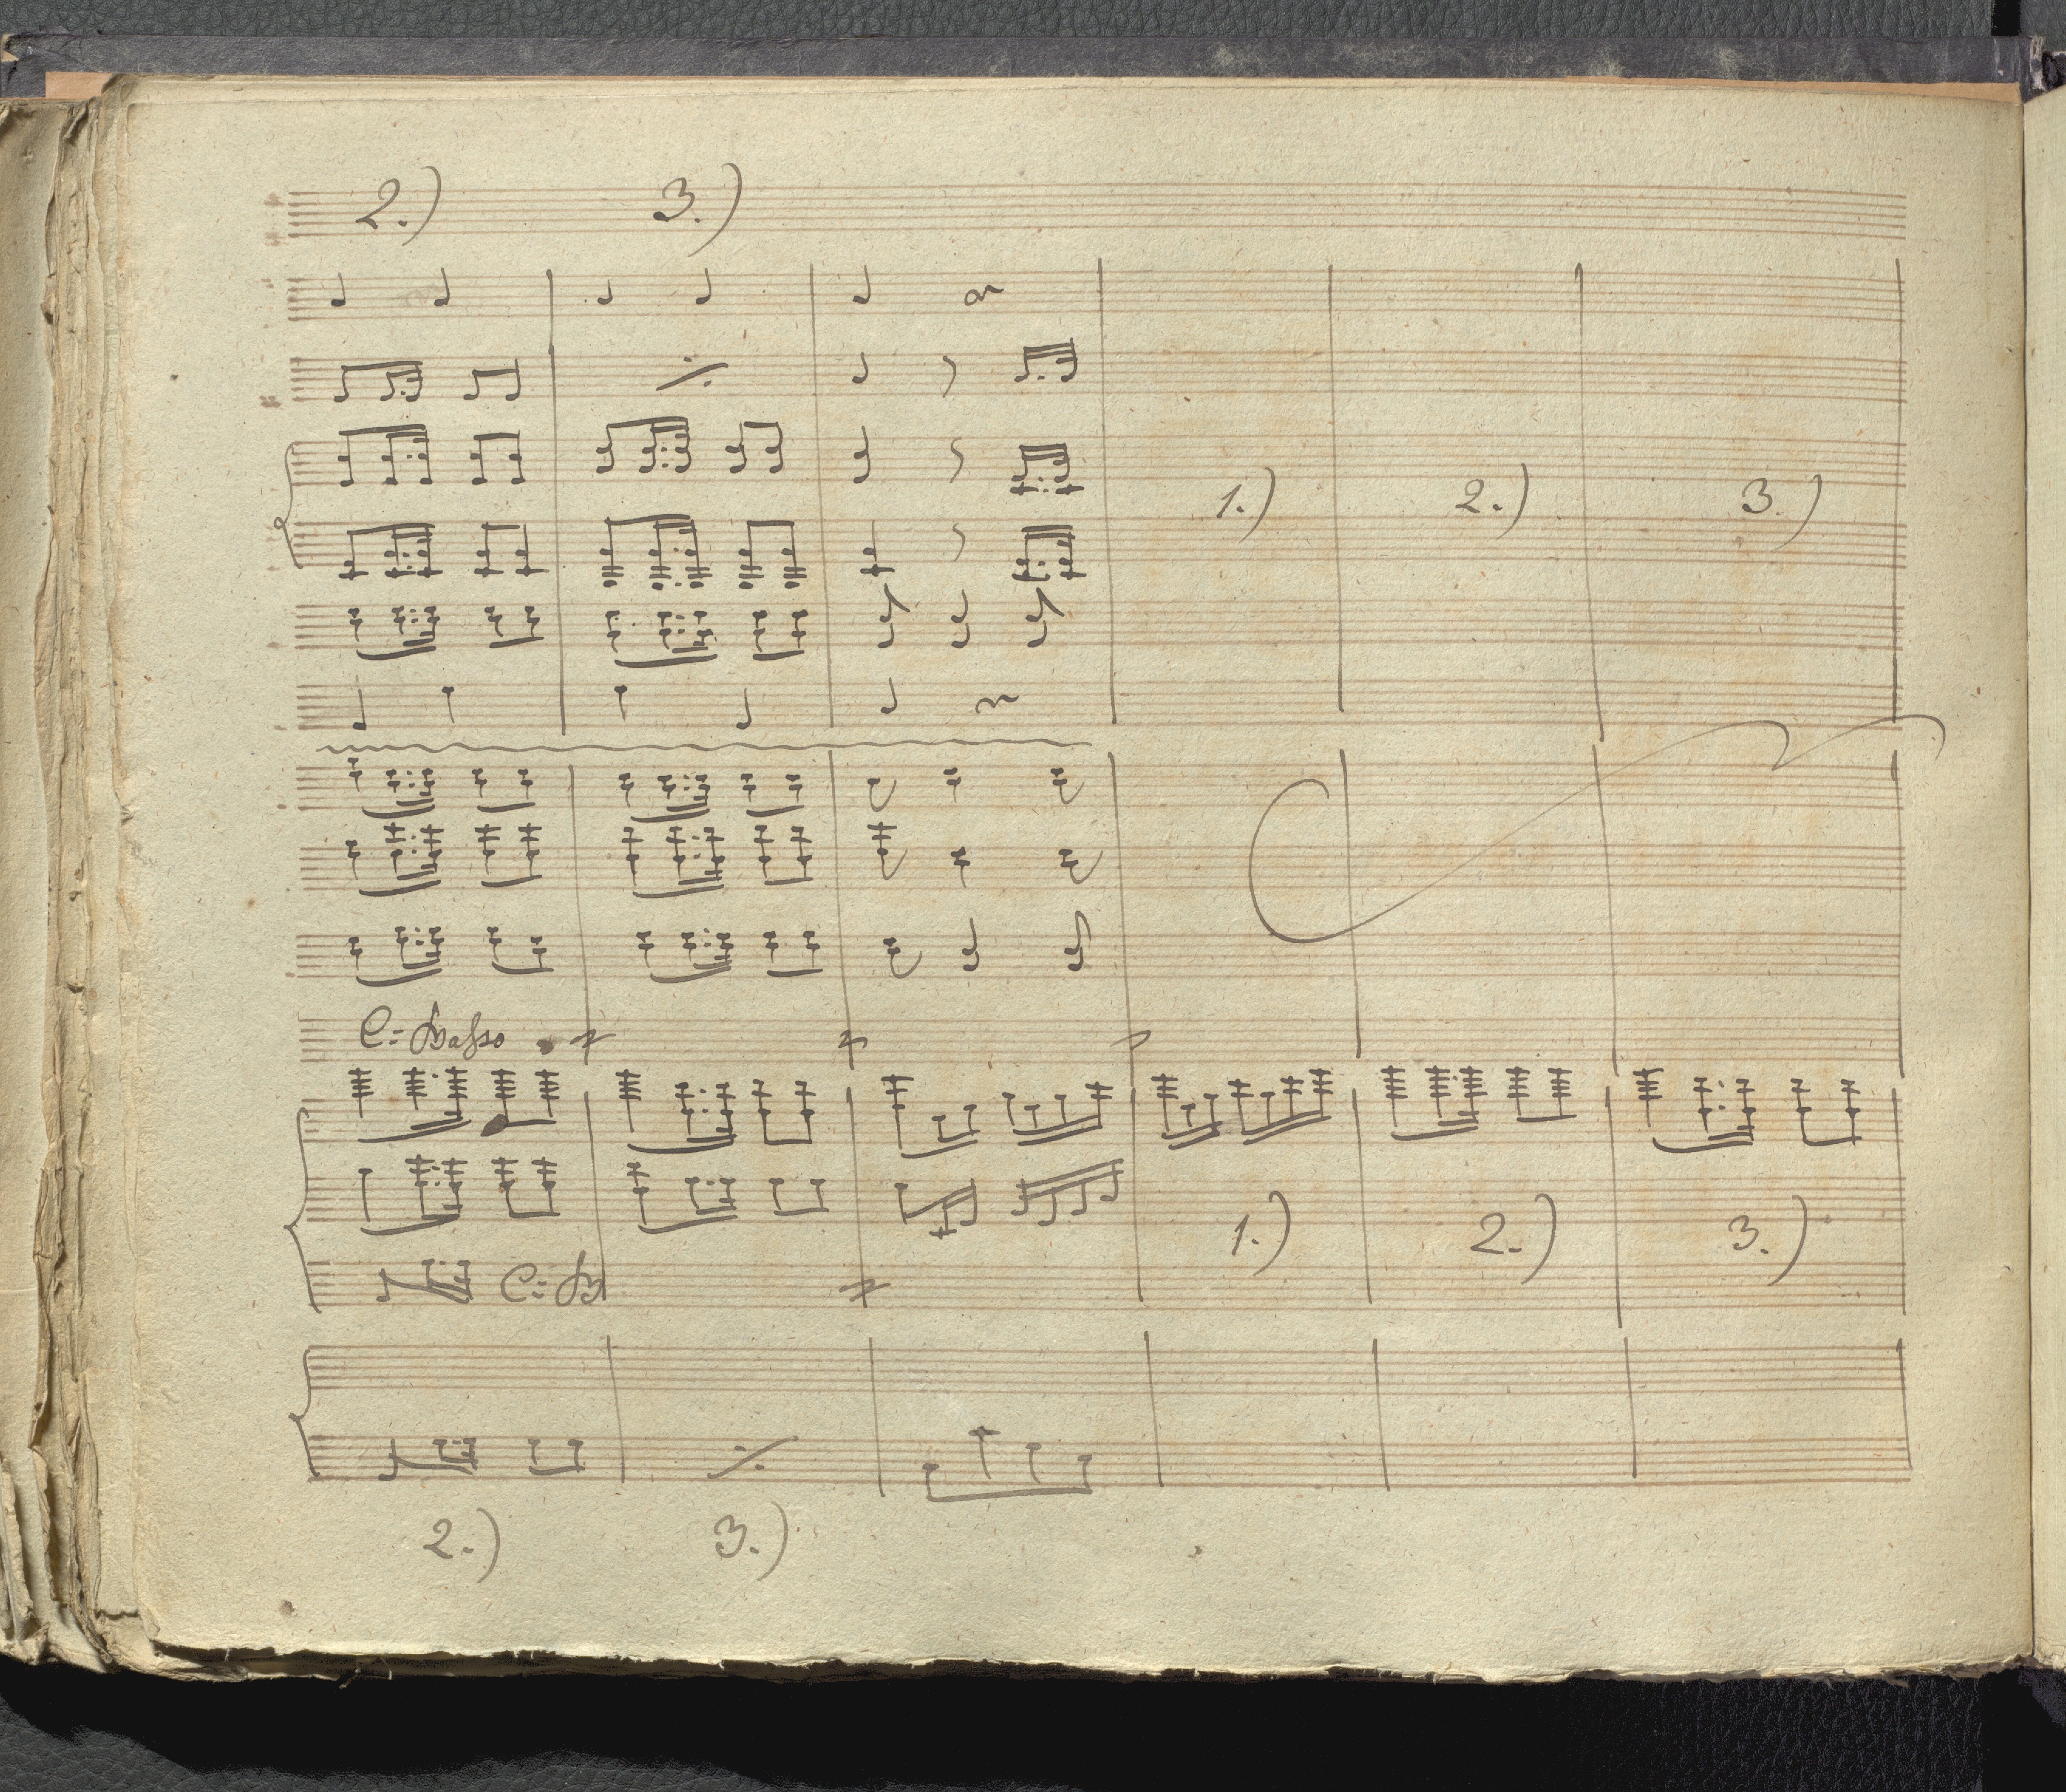 2.) 3.)
1.) 2.) 3.)
C: Basso
1.) 2.) 3.)
C: B
2.) 3.)